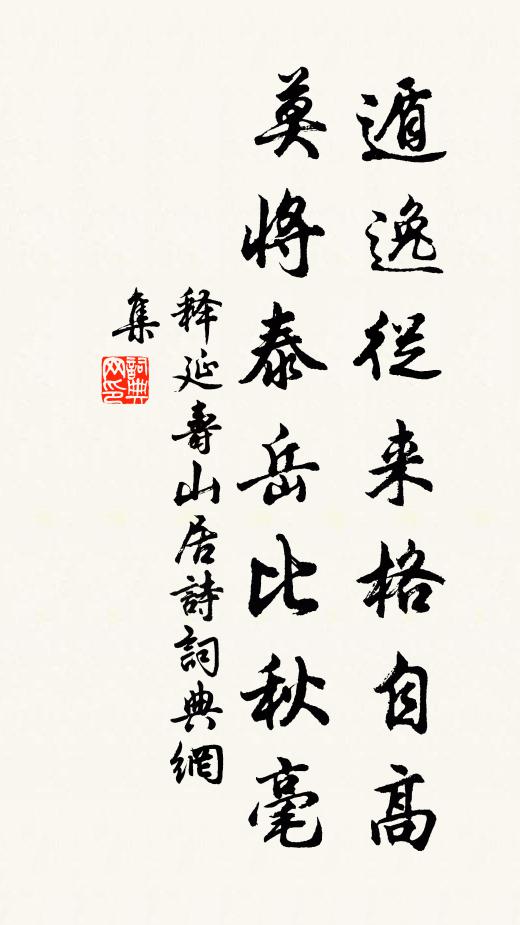 遁逸從来格自高
莫將泰岳比秋毫
释延壽山居詩詞典網
集
詞典
网印